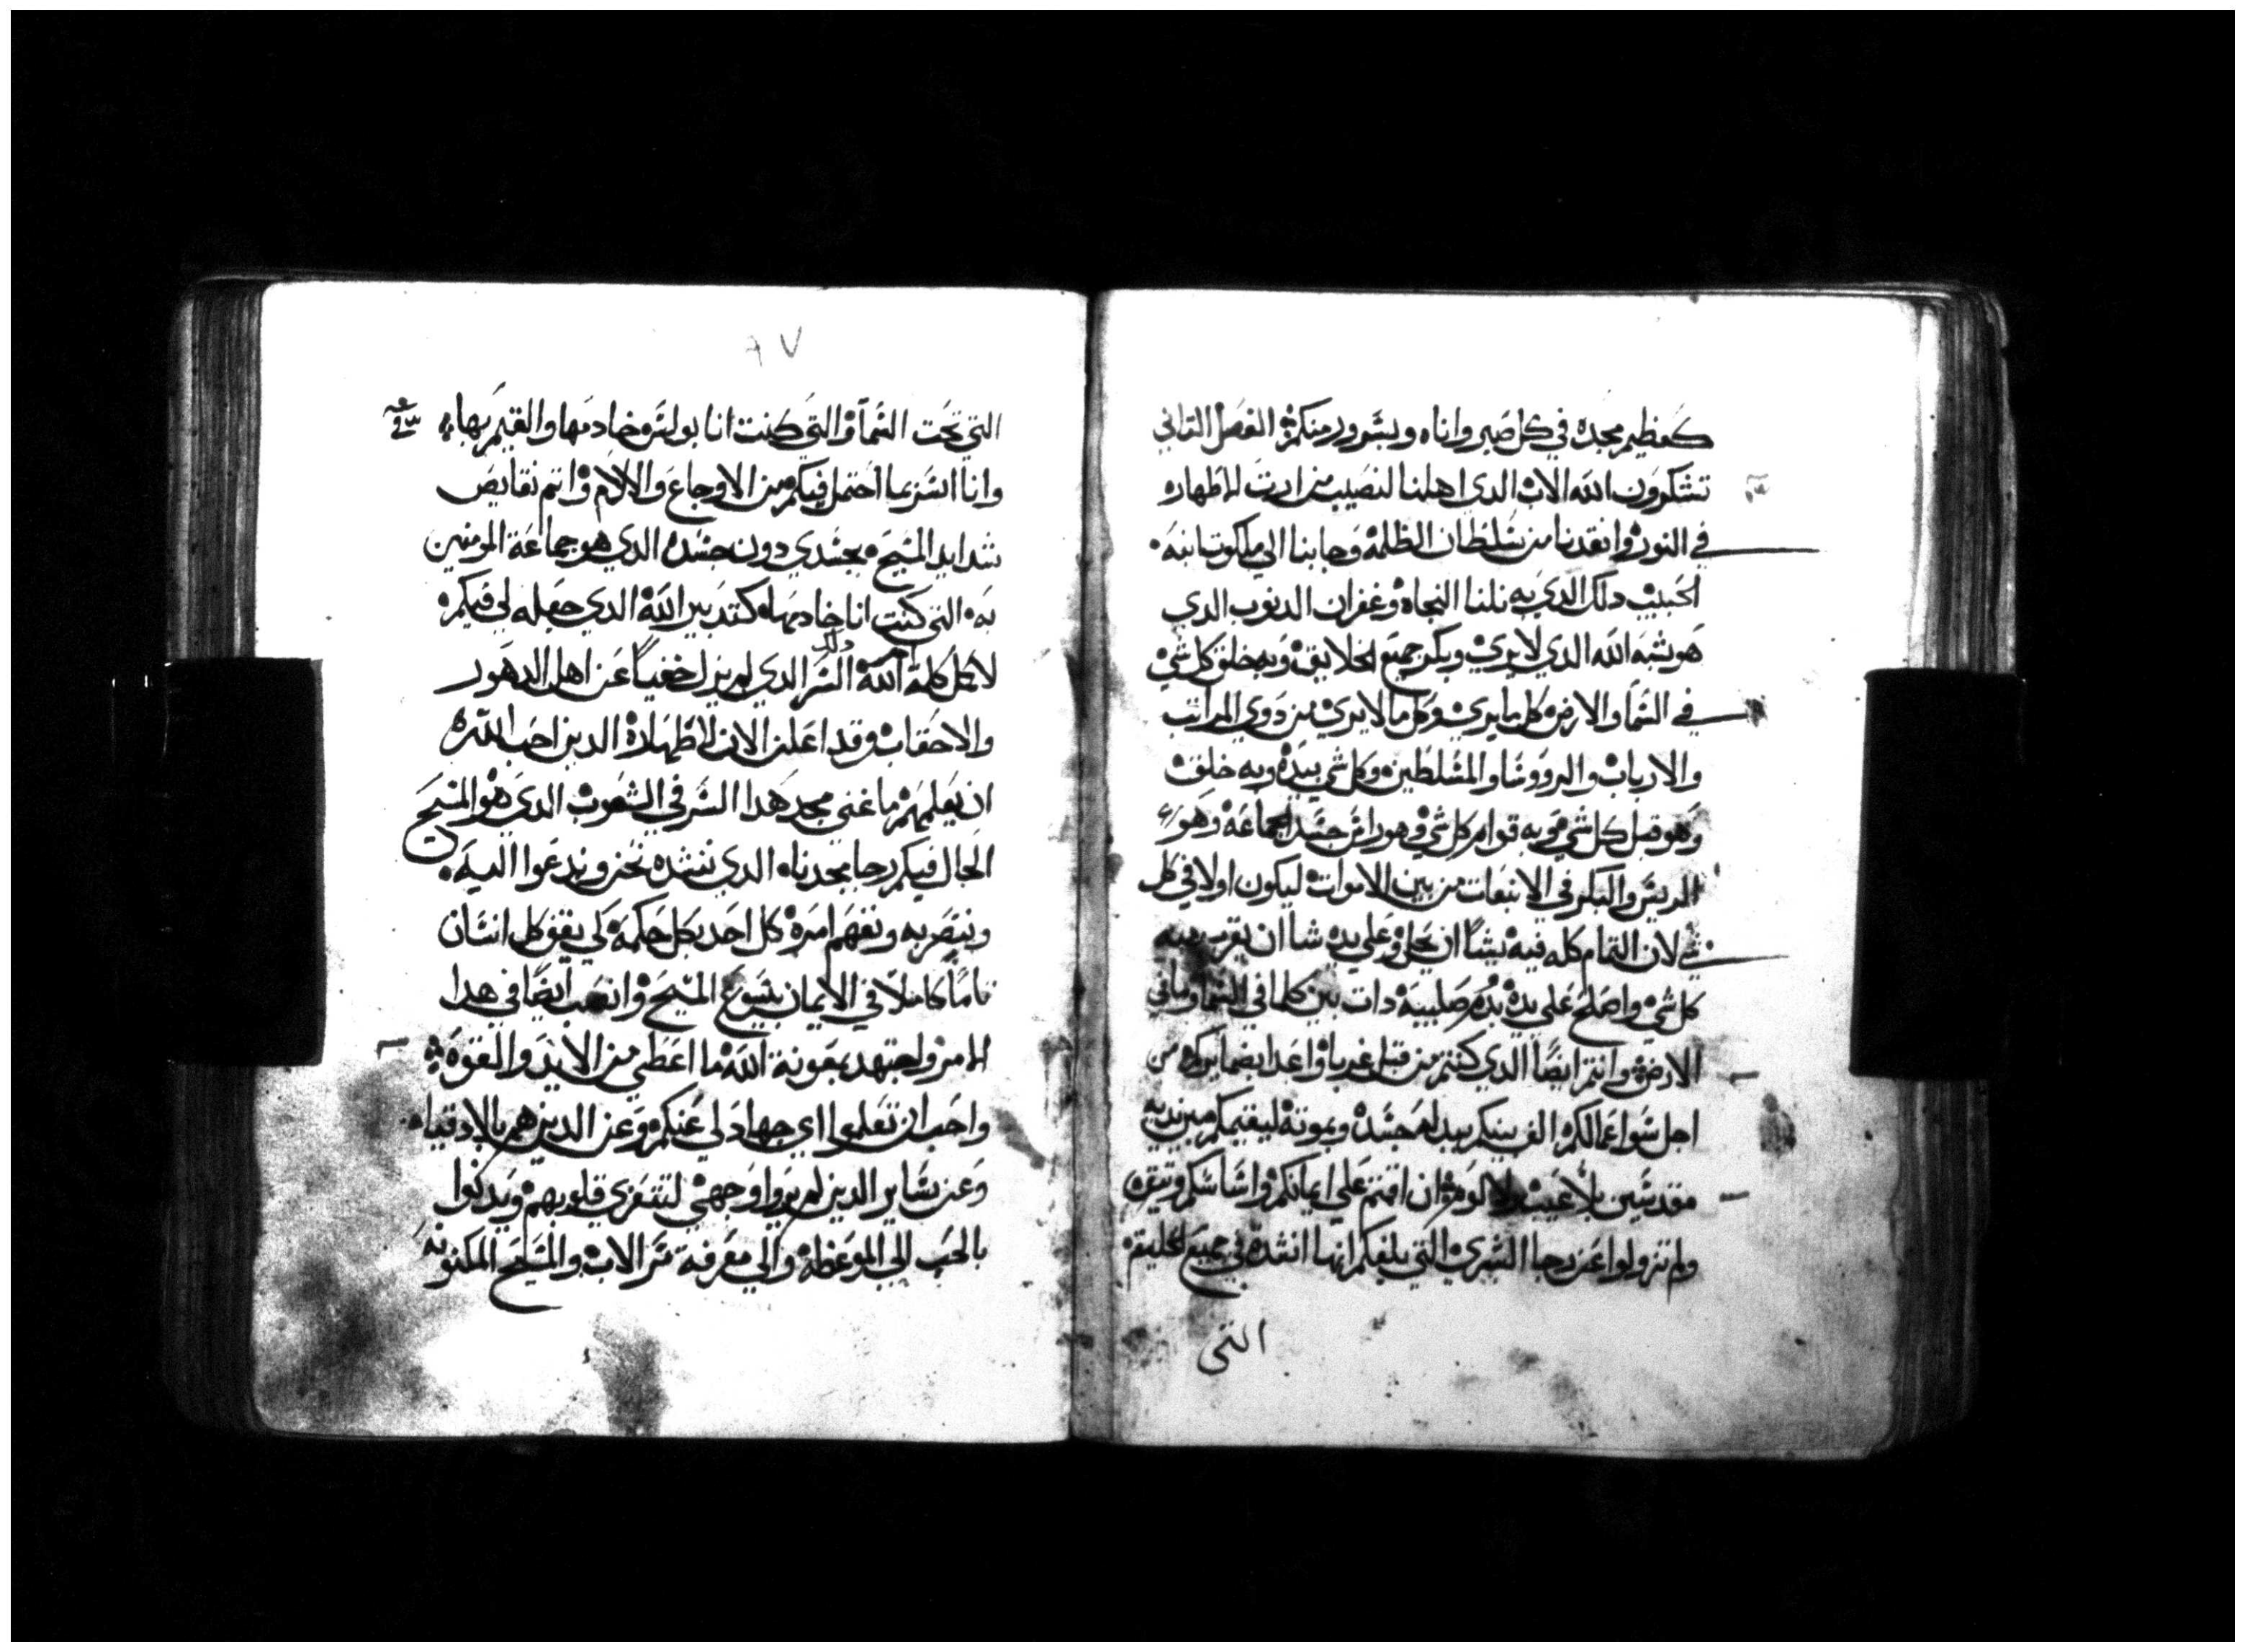 كعظيم مجده في كل صبر واناه وبسرور منكم الفصل التاني
تشكرون الله الاب الدي اهلنا لنصيب من ارت الاظهاره
في النور وانقدنا من سلطان الظلمة وجابنا الي ملكوت ابنه
الحبيب دلك الدي به نلنا النجاة وغفران الدنوب الدي
هو شبه الله الدي لا يري وبكر جميع الخلايق وبه خلق كل شي
في السما والارض كل ما يري وكل ما لا يري من دوي المراتب
والارباب والرووسا والمسلطين وكل شي بيده وبه خلق
وهو قبل كل شي وبه قوام كل شي وهو راس جسد الجماعة وهو
الريس والبكر في الانبعات من بين الاموات ليكون اولا في كل
شي لان التمام كله فيه يشا ان يحل وعلي يده شا ان
كل شي واصلح علي يده بدم صليبه دات بين كلما في السما وما في
الارض وانتم ايضا الدي كنتم من قبل غربا واعدا من
اجل سوا اعمالكم الف بينكم ببدله جسده وبموته ليقيمكم بين يديه
مقدسين بلا عيب ولا لوم ان اقمتم علي ايمانكم واساسكم
ولم تزولوا عن رجا البشري التي بلغكم انها اندره في جميع الخليقة
التي
٨٧
التي تحت السما والتي كنت انا بولس خادمها والقيم بها
وانا اسر بما احتمل فيكم من الاوجاع والالام واتم نقايص
شدايد المسيح بجسدي دون جسده الدي هو جماعة المومنين
به التي كنت انا خادمها كتدبير الله الدي جعله لي فيكم
لاكمل كلمة الله دلك السر الدي لم يزل خفيا عن اهل الدهور
والاحقاب وقد اعلن الان لاظهاره الدين احب الله
ان يعلمهم ما غني مجد هدا السر في الشعوب الدي هو المسيح
الحال فيكم رجا مجدنا الدي ننشده نحن وندعوا اليه
ونبصر به ونفهم امره كل احد بكل حكمة كي يقف كل انسان
تاما كاملا في الايمان بيسوع المسيح وانصب ايضا في هدا
الامر واجتهد بمعونة الله ما اعطي من الايد والقوة
واحب ان تعلموا اي جهاد لي عنكم وعن الدين هم بالادقيا
وعن ساير الدين لم يروا وجهي لتتعزي قلوبهم ويدنوا
بالحب الي الموعظة والي معرفة سر الاب والمسيح المكنونه